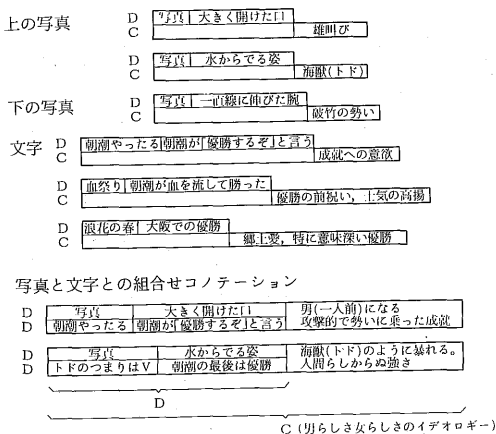 上の写真
D 写真 大きく開けた口
C 雄叫び
D 写真 水からでる姿
C 海獣(トド)
下の写真
D 写真 一直線に伸びた腕
C 破竹の勢い
文字
D 朝潮やったる 朝潮が「優勝するぞ」と言う
C 成就への意欲
D 血祭り 朝潮が血を流して勝った
C 優勝の前祝い, 士気の高揚
D 浪花の春 大阪での優勝
C 郷土愛, 特に意味深い優勝
写真と文字との組合せコノテーション
D 写真 大きく開けた口 男(一人前)になる
D 朝潮やったる 朝潮が「優勝するぞ」と言う 攻撃的で勢いに乗った成就
D 写真 水からでる姿 海獣(トド)のように暴れる。
D トドのつまりはV 朝潮の最後は優勝 人間らしからぬ強さ
D
C (男らしさ女らしさのイデオロギー)